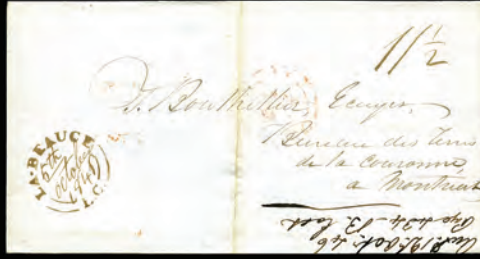 11½
T. Bouthillier, Ecuyer,
Bureau des Terres
de la Couronne,
a Montréal
LA-BEAUCE
5th
October
1846
L.C.